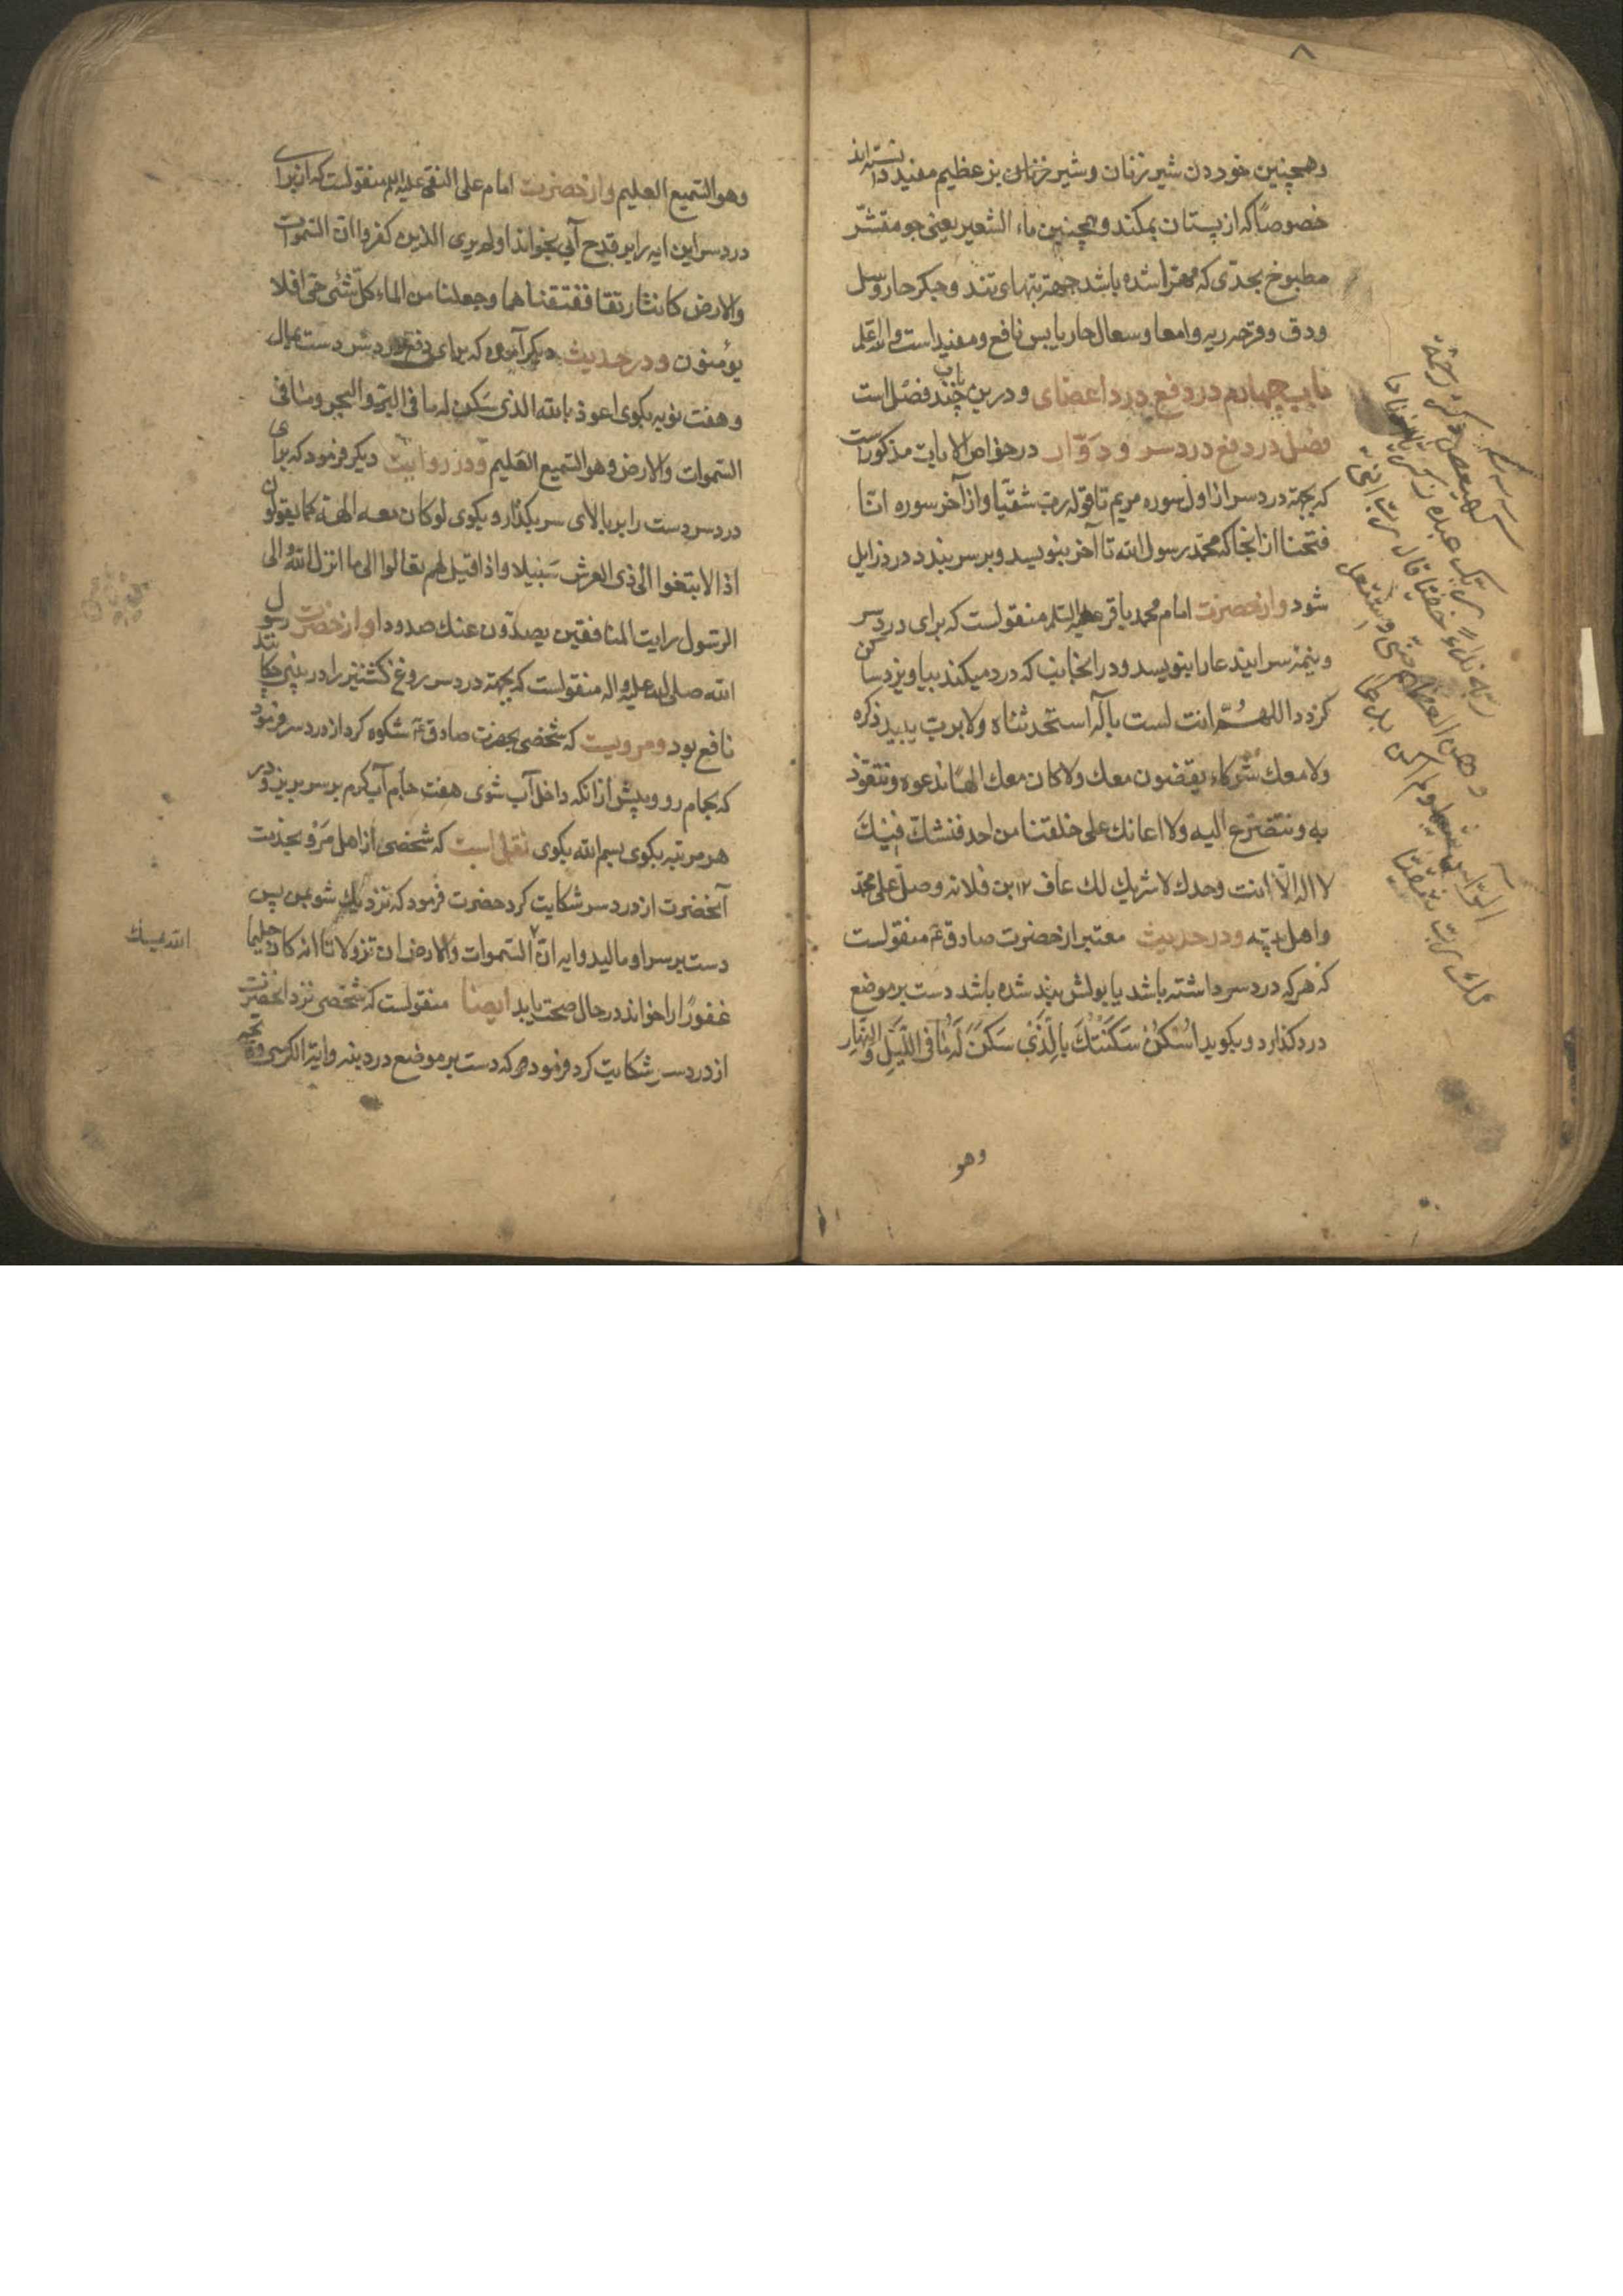 ۸
وهمچنین خوردن شیر زنان وشیر خر وشیر بز عظیم مفید دانسته اند
خصوصًا که از پستان بمکند وهمچنین ماء الشعیر یعنی جو مقشّر
مطبوخ بحدّی که مهترا شده باشد جهة تبهای تند و جکر حار وسل
ودق وقرحه ریه وامعا وسعال حار یابس نافع ومفید است والله اعلم
باب چهارم در دفع درد اعضای ودرین باب چند فصل است
فصل در دفع درد سر ودَوّار در خواص الایات مذکور است
که بجهة درد سر از اول سوره مریم تا قوله رب شقیّا واز آخر سوره انّا
فتحنا از انجا که محمّد رسول الله تا آخر بنویسد وبر سر بندد درد زایل
شود واز حضرت امام محمد باقر علیه السلم منقولست که برای درد سر
ونیمه سر ایند عا را بنویسد ودر انجانب که درد میکند بیاویزد ساکن
کردد اللهُمّ انت لست باله استحدثناه ولا برب یبید ذکره
ولا معك شركاء یقضون معك ولا كان معك الهًا ندعوه ونتعوّذ
به ونتضرع الیه ولا اعانك علی خلقنا من احد فنشكّ فیك
لا اله الّا انت وحدك لا شریك لك عاف ١٢ بن فلانه وصلّ علی محمّد
واهل بیته ودر حدیث معتبر از حضرت صادق ع منقولست
که هر که درد سر داشته باشد یا بولش بند شده باشد دست بر موضع
درد کذارد وبکوید اُسْكُنْ سَكَّنْتُكَ بِالَّذی سَكَنَ لَهُ مٰا فی اللَّیلِ وَالنَّهٰارِ
وهو
كهیعص ذكر رحمة
ربّك عبده زكریّا اذ نادا
ربّه نداءً خفیّا قال ربّ انّی
وهن العظم منّی واشتعل
الرّاس شیبا ولم اكن بدعا
ئك ربّ شقیّا
وهو السّمیع العلیم واز حضرت امام علی النقی علیه السلم منقولست که از برای
درد سر این ایه را بر قدح آبی بخواند اولم یری الذین كفروا انّ السّموات
والارض كانتا رتقا ففتقناهما وجعلنا من الماء كلّ شئی حی افلا
یؤمنون ودر حدیث دیکر آمده که برای دفع درد سر دست بمال
وهفت نوبه بکوی اعوذ بالله الذی سَكن له ما فی البرّ والبحر وما فی
السّموات والارض وهو السّمیع العَلیم ودر روایت دیکر فرمود که برای
درد سر دست را بر بالای سر بکذار وبکوی لو كان معه الهة كما یقولون
اذا لابتغوا الی ذی العرش سَبیلا واذا قیل لهم تعالوا الی ما انزل الله والی
الرّسول رایت المنافقین یصدّون عنك صدودا واز حضرت رسول
الله صلی الله علیه واله منقولست که بجهة درد سر روغن کشنیز را در بینی چکانند
نافع بود ومرویست که شخصی بحضرت صادق ع شکوه کرد از درد سر فرمود
که بحمام رو وپیش از انکه داخل آب شوی هفت جام آب کرم بر سر بریز ودر
هر مرتبه بکوی بسم الله بکوی نقل است که شخصی از اهل مَرْو بخدمت
آنحضرت از درد سر شکایت کرد حضرت فرمود که نزدیك شو بمن پس
دست بر سر او مالید وایه انّ السّموات والارض ان تزولا تا انه كان حلیما
غفورًا را خواند در حال صحت یابد ایضا منقولست که شخصی نزد انحضرت
از درد سر شکایت کرد فرمود هر که دست بر موضع درد بنه وایة الکرسی